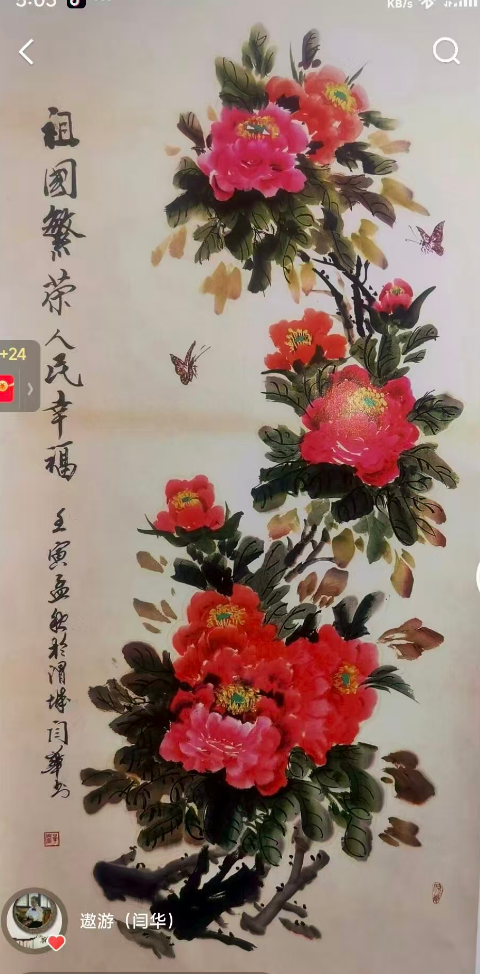 5:05
KB/s
祖國繁荣人民幸福
壬寅孟秋於渭城闫華书
+24
遨游（闫华）